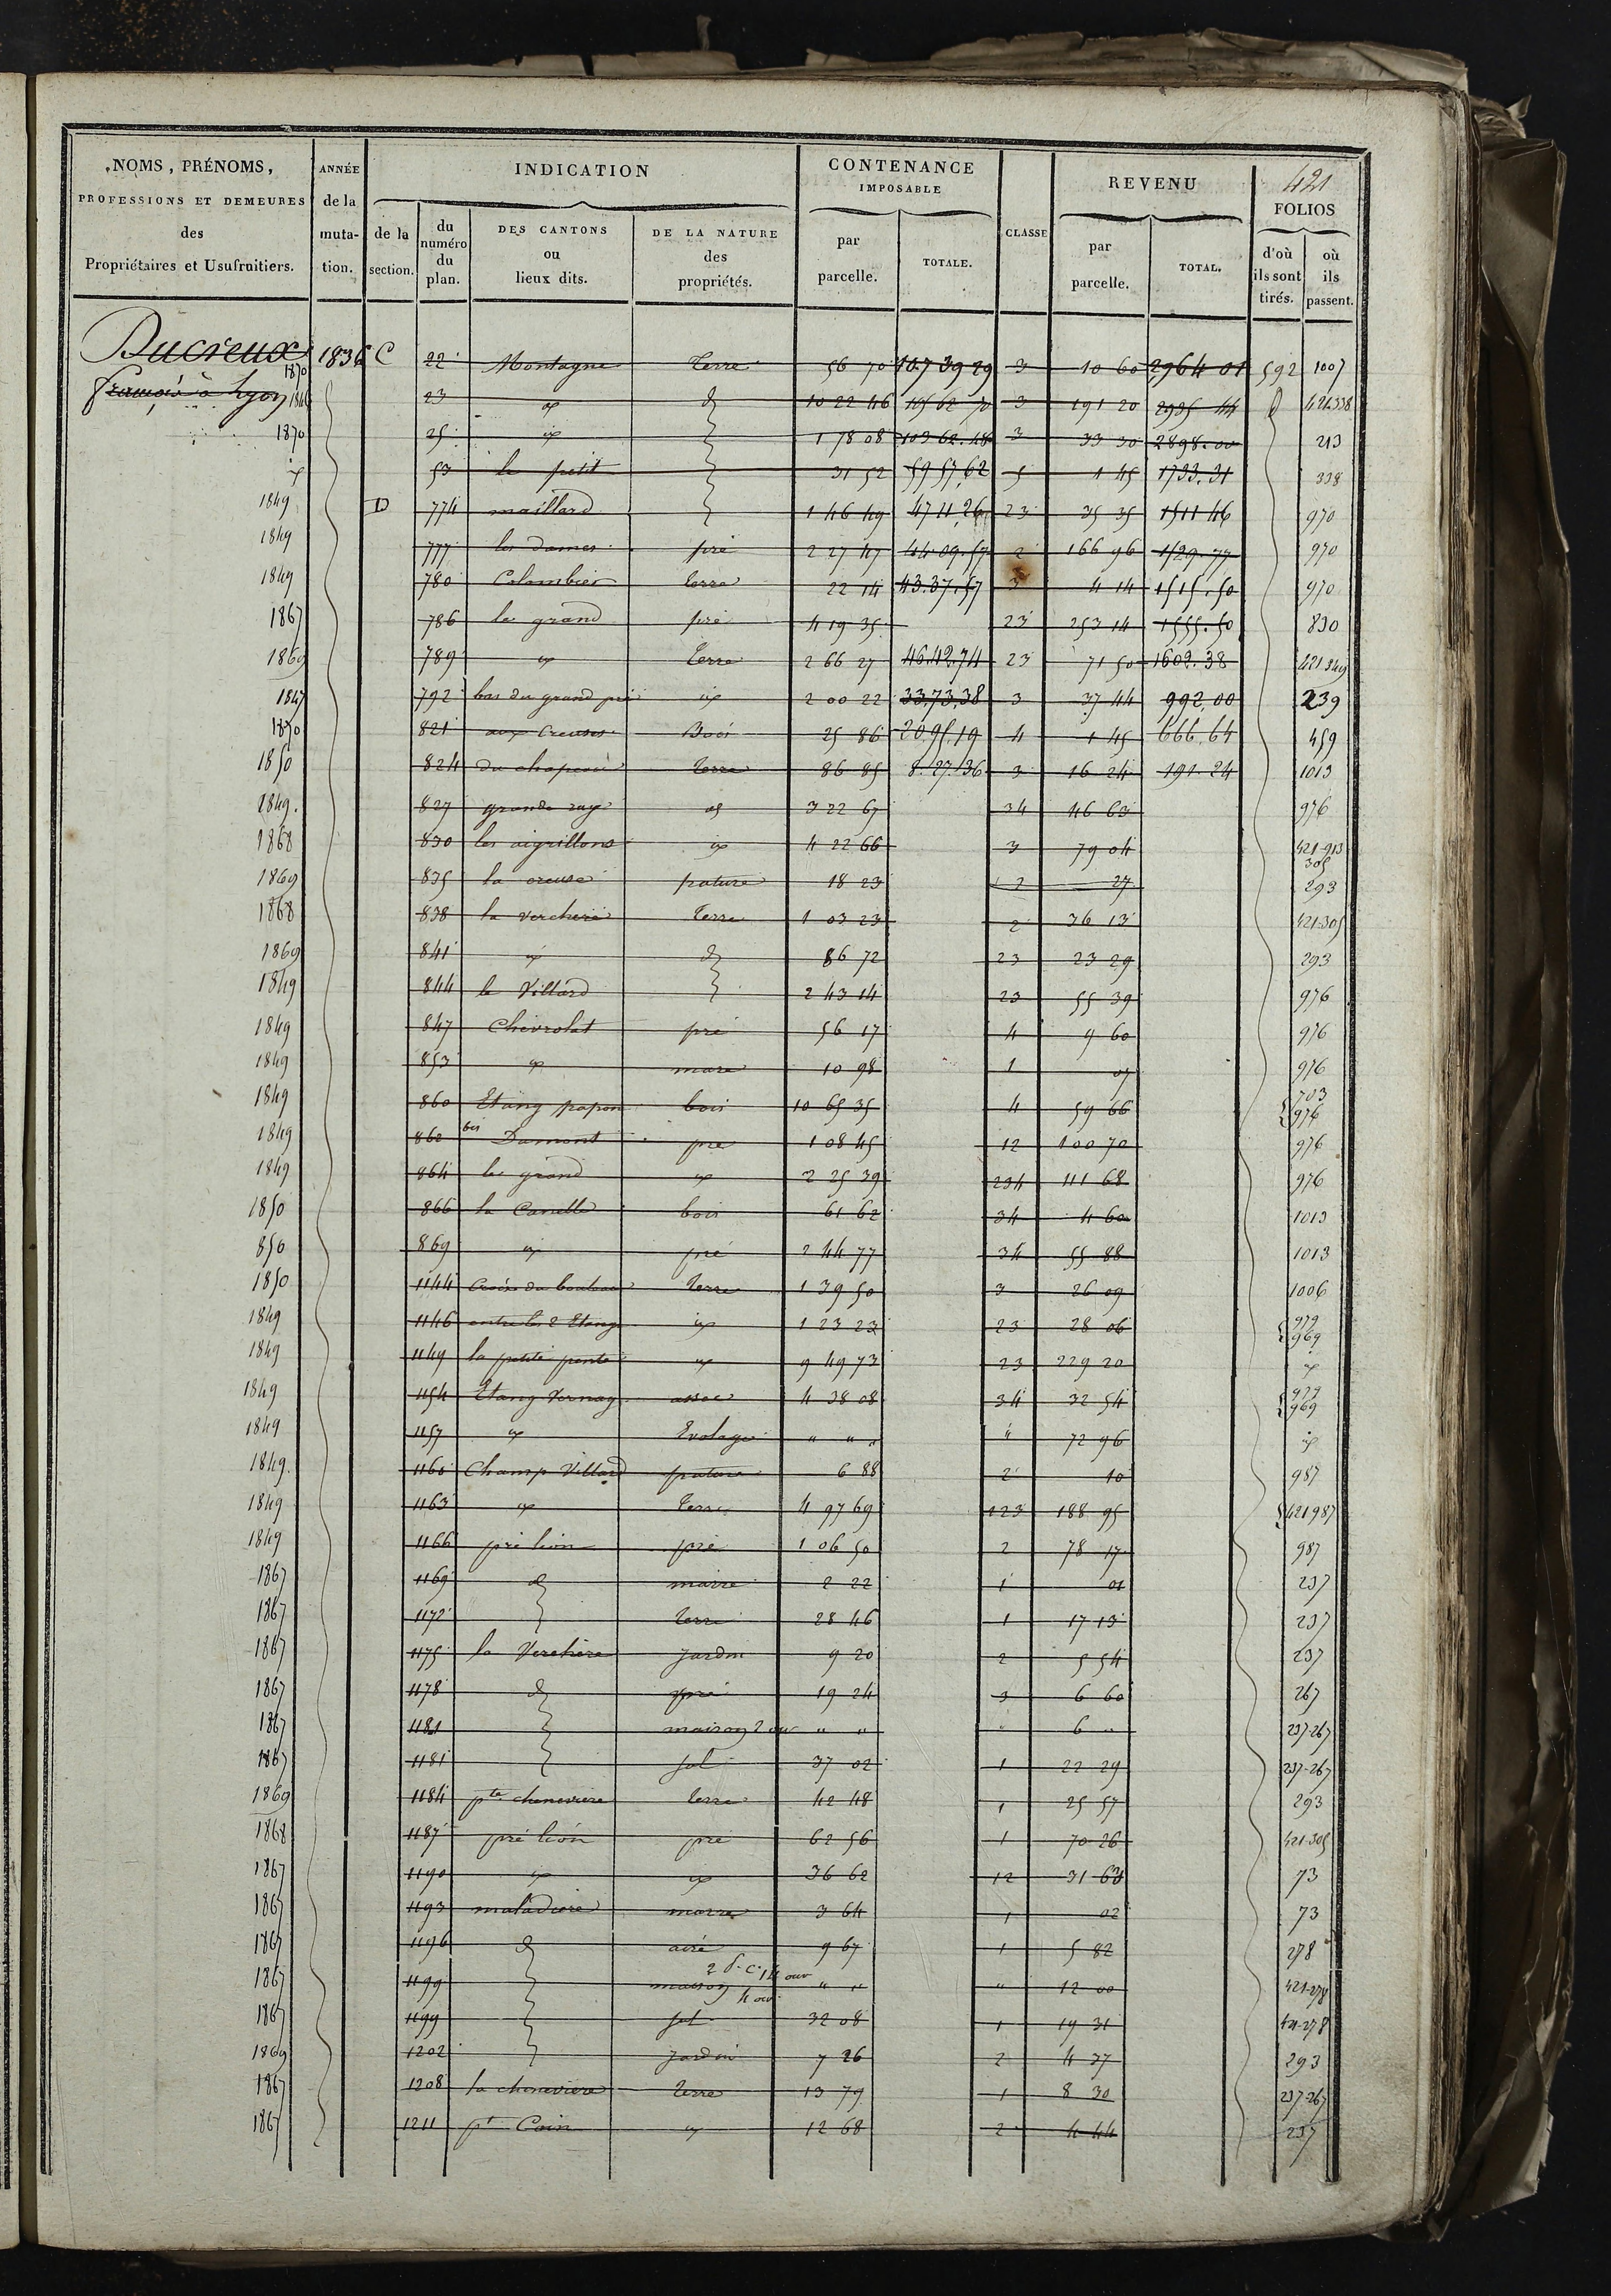 421
NOMS, PRÉNOMS, PROFESSIONS ET DEMEURES des Propriétaires et Usufruitiers. | ANNÉE de la mutation. | INDICATION de la section. | du numéro du plan. | DES CANTONS ou lieux dits. | DE LA NATURE des propriétés. | CONTENANCE IMPOSABLE par parcelle. | TOTALE. | CLASSE | REVENU par parcelle. | TOTAL. | FOLIOS d'où ils sont tirés. | où ils passent.
Ducreux 1870 1836 C 22 Montagne Terre 56 70 107 39 29 3 10 60 2964 01 592 1007
françois à Lyon 23 d 10 22 46 3 191 20 2935 44 421.338
1870 25 1 78 08 103 62.48 3 33 30 2898.00 213
53 le petit 31 52 59 57,62 5 1 45 1733.31 338
1849 D 774 maillard 1 46 49 47 11,26 23 35 35 1511 46 970
1849 777 les dames pré 2 27 47 44.09.57 2 166 96 970
1849 780 Colombier terre 22 14 43.37.57 3 4 14 1515.50 970
1867 786 le grand pré 4 19 35 23 253 14 1555.50 830
1869 789 Terre 2 66 27 46.42.74 23 71 50 1602.38 421 349
1847 792 bas du grand pré 2 00 22 33,73,38 3 37 44 992,00 239
1870 821 aux Creuses Bois 25 86 20,95,19 4 1 45 666,64 459
1850 824 du chapeau Terre 86 85 8.27.36 3 16 24 191.24 1013
1849. 827 grande raye 3 22 67 34 46 63 976
1868 830 les aigrillons 4 22 66 3 79 04 421-913 305
1869 835 la creuse pature 18 23 2 27 293
1868 838 la verchere Terre 1 03 23 2 36 13 421.305
1869 841 d 86 72 23 23 29 293
1849 844 le Villard 2 43 14 23 55 39 976
1849 847 Chevrolat pré 56 17 4 9 60 976
1849 853 mare 10 98 1 976
1849 860 Etang papon bois 10 65 35 4 59 66 703 976
1849 860 bis Dumont pré 1 08 45 12 100 70 976
1849 864 le grand 2 25 39 234 111 68 976
1850 866 la Canelle bois 61 62 34 4 60 1013
850 869 pré 2 44 77 34 55 88 1013
1850 1144 Croix du Terre 1 39 50 3 26 09 1006
1849 1146 entre les 2 Etang 1 23 23 23 28 06 979 969
1849 1149 la petite pente 9 49 73 23 229 20
1849 1154 Etang Vernay assec 4 38 08 34 32 54 979 969
1849 1157 Evolage " " " " 72 96
1849. 1160 Champ Villard pature 6 88 2 10 987
1849 1163 Terre 4 97 69 123 188 95 421 987
1849 1166 pré lion pré 1 06 50 2 78 17 987
1867 1169 d marre 2 22 1 01 237
1867 1172 Terre 28 46 1 17 13 237
1867 1175 la Verchère Jardin 9 20 2 5 54 237
1867 1178 d pré 19 24 3 6 60 267
1867 1181 maison 2 ouv " " " 6 " 237-267
1867 1181 sol 37 02 1 22 29 237-267
1869 1184 pte cheneviere terre 42 48 1 25 57 293
1868 1187 pré lion pré 62 56 1 70 26 421-305
1867 1190 36 62 12 31 63 73
1867 1193 maladiere marre 3 64 1 02 73
1867 1196 d airé 9 67 1 5 82 278
1867 1199 maison 4 ouv " " " 12 00 421-278
1867 1199 sol 32 08 1 19 31 421-278
1869 1202 Jardin 7 26 2 4 37 293
1867 1208 la cheneviere Terre 13 79 1 8 30 237-267
1867 1211 pt Coin 12 68 2 4 44 237